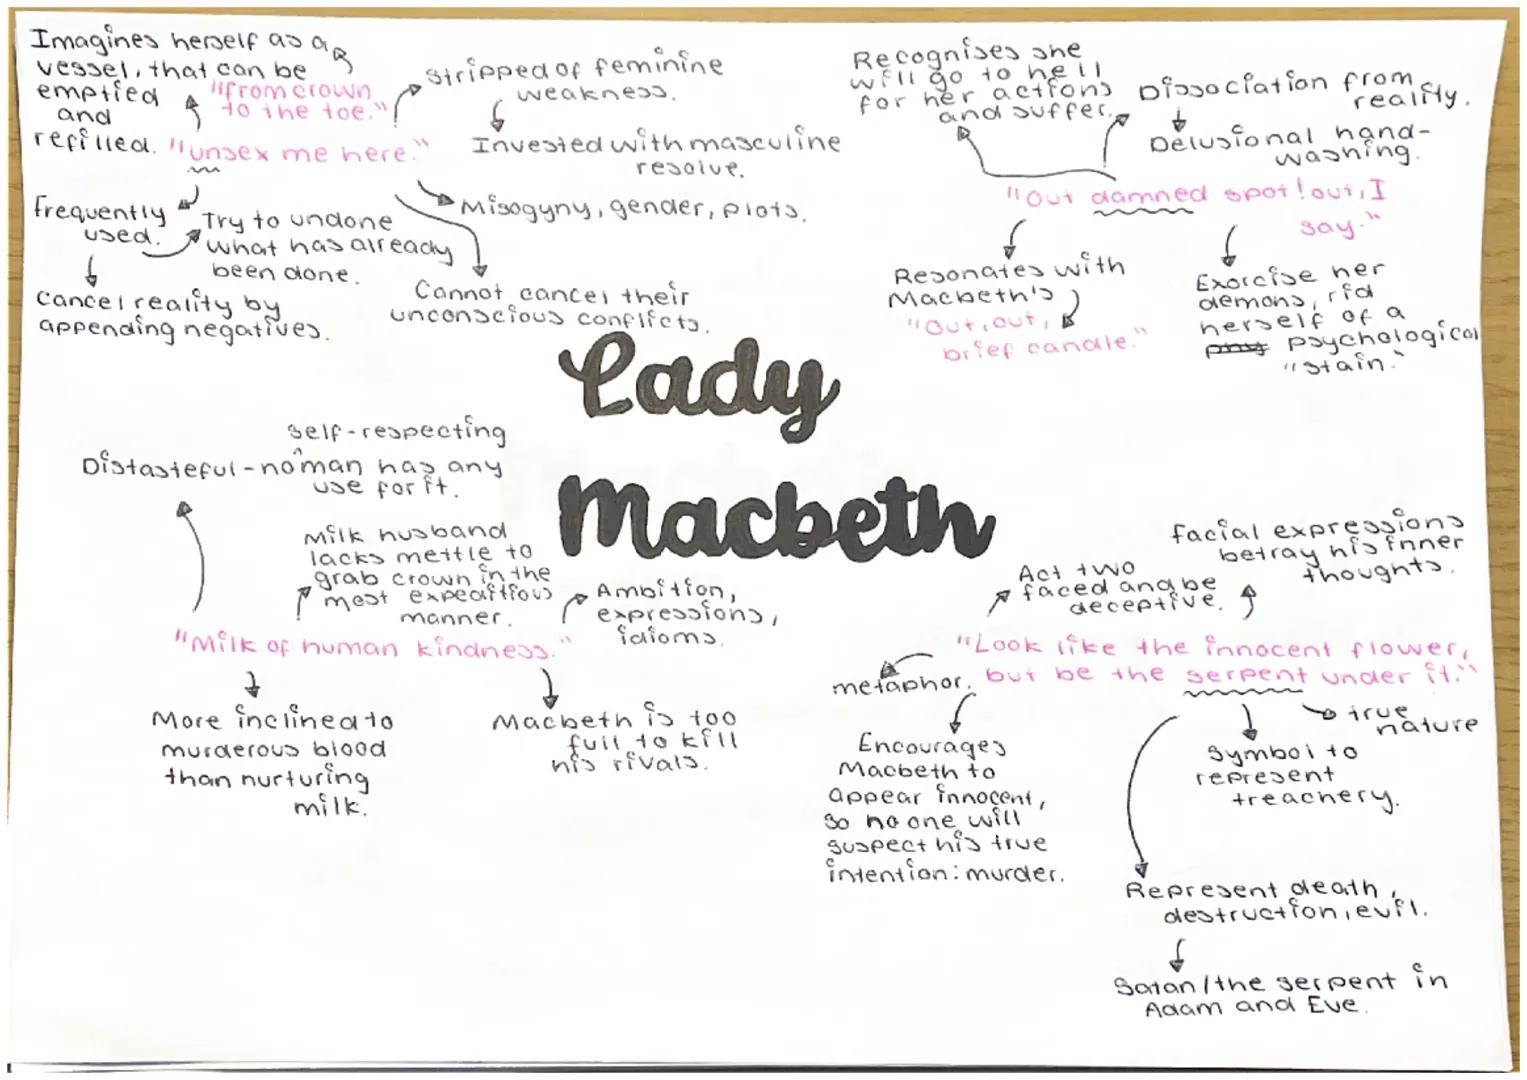 Imagines herself as a
vessel, that can be
emptied
and
refilled.
"from crown
to the toe."
"unsex me here."
stripped of feminine
weakness.
Invested with masculine
resolve.
Misogyny, gender, plots.
Cannot cancel their
unconscious conflicts.
frequently
used.
Try to undone
what has already
been done.
Cancel reality by
appending negatives.
Recognises she
will go to hell
for her actions
and suffer.
Dissociation from
reality.
Delusional hand-
washing.
"Out damned spot! out, I
say."
Resonates with
Macbeth's
"Out, out,
brief candle."
Exorcise her
demons, rid
herself of a
psychological
"stain."
Lady
Macbeth
self-respecting
Distasteful - no man has any
use for it.
Milk husband
lacks mettle to
grab crown in the
most expeditious
manner.
Ambition,
expressions,
idioms.
"Milk of human kindness."
More inclined to
murderous blood
than nurturing
milk.
Macbeth is too
full to kill
his rivals.
Act two
faced and be
deceptive.
facial expressions
betray his inner
thoughts.
"Look like the innocent flower,
but be the serpent under it."
metaphor.
Encourages
Macbeth to
appear innocent,
so no one will
suspect his true
intention: murder.
true
nature
Symbol to
represent
treachery.
Represent death,
destruction, evil.
Satan/the serpent in
Adam and Eve.